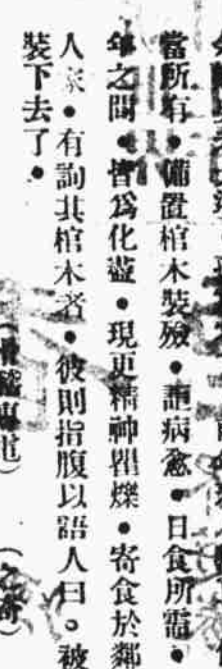 當所有•備置棺木裝殮•詎病愈•日食所需•
年之間•皆爲化盡•現更精神矍爍•寄食於鄰
人家•有詢其棺木者•彼則指腹以語人曰。被
裝下去了•